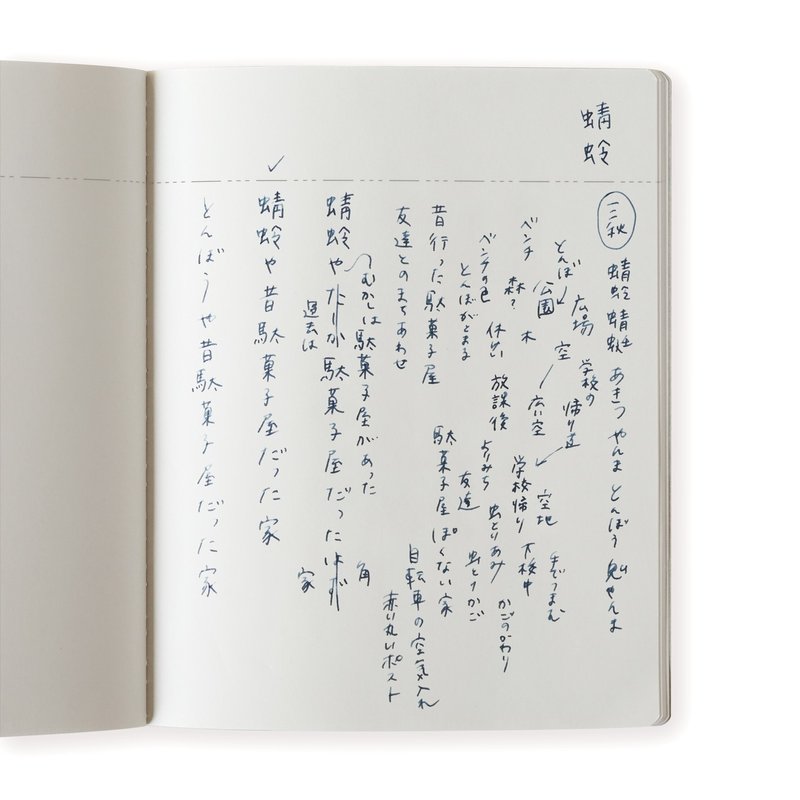 蜻蛉
三秋
蜻蛉 蜻蜓 あきつ やんま とんぼう 鬼やんま
学校の帰り道
広場 空 広い空 空地 手でつまむ
とんぼ 公園 木 学校帰り 下校中
ベンチ 森？ 休けい 放課後 よりみち 虫とりあみ かごのかわり
ベンチの色 とんぼがとまる 友達 虫とりかご
昔行った駄菓子屋 駄菓子屋ぽくない家
友達とのまちあわせ 自転車の空気入れ
赤い丸いポスト
むかしは駄菓子屋があった 角
蜻蛉やたしか駄菓子屋だったはず
過去は 家
蜻蛉や昔駄菓子屋だった家
とんぼうや昔駄菓子屋だった家